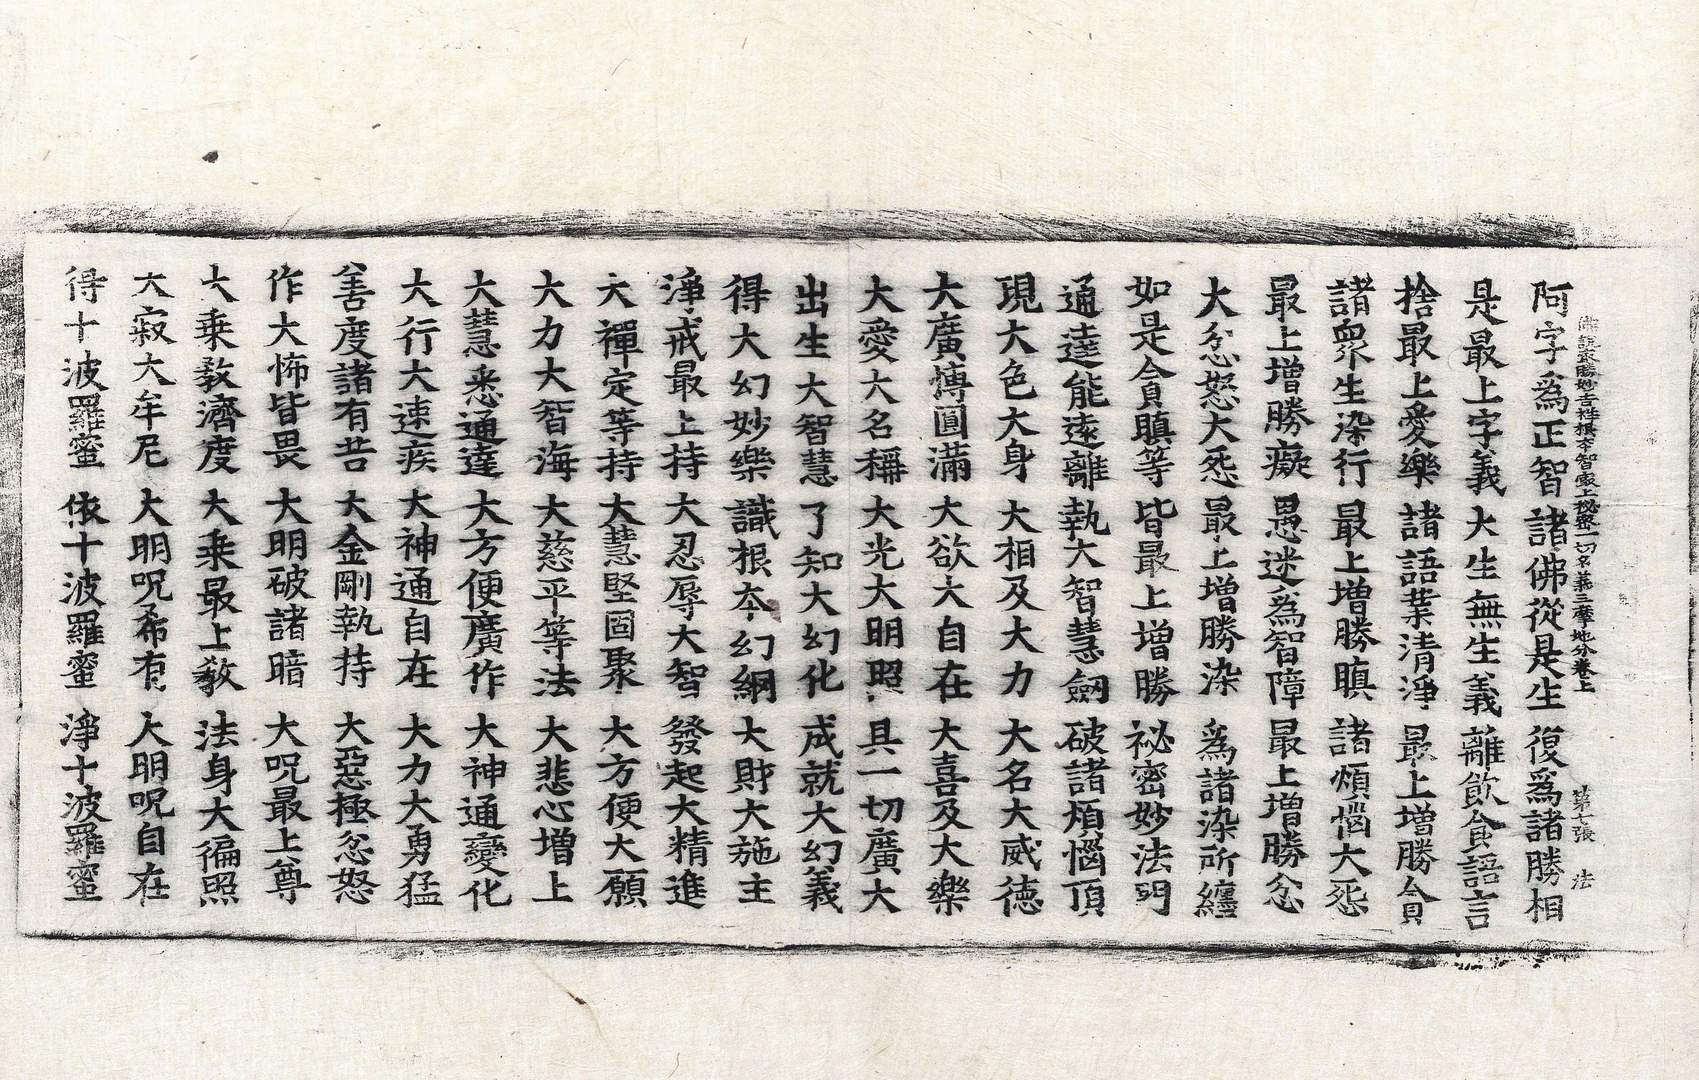 佛說最勝妙吉祥根本智最上秘密一切名義三摩地分卷上 第七張 法
阿字為正智 諸佛從是生 復為諸勝相
是最上字義 大生無生義 離飲食語言
捨最上愛樂 諸語業清淨 最上增勝貪
諸眾生染行 最上增勝瞋 諸煩惱大惌
最上增勝癡 愚迷為智障 最上增勝忿
大忿怒大惌 最上增勝染 為諸染所纏
如是貪瞋等 皆最上增勝 祕密妙法門
通達能遠離 執大智慧劒 破諸煩惱頂
現大色大身 大相及大力 大名大威德
大廣慱圓滿 大欲大自在 大喜及大樂
大愛大名稱 大光大明照 具一切廣大
出生大智慧 了知大幻化 成就大幻義
得大幻妙樂 識根本幻網 大財大施主
淨戒最上持 大忍辱大智 發起大精進
大禪定等持 大慧堅固聚 大方便大願
大力大智海 大慈平等法 大悲心增上
大慧悉通達 大方便廣作 大神通變化
大行大速疾 大神通自在 大力大勇猛
善度諸有苦 大金剛執持 大惡極忿怒
作大怖皆畏 大明破諸暗 大呪最上尊
大乘敎濟度 大乘最上敎 法身大徧照
大寂大牟尼 大明呪希有 大明呪自在
得十波羅蜜 依十波羅蜜 淨十波羅蜜